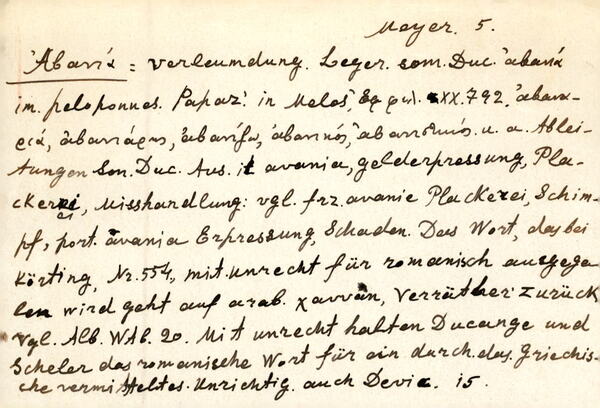 Meyer. 5.
Ἀβανίά = verleumdung. Leger. som. Duc. ἀβανιά
im. peloponnes. Papaz. in Melos Ἐφ φιλ. XX. 792. ἀβανα-
ριά, ἀβανιάρης, ἀβανίζω, ἀβανικός, ἀβανισμός. u. a. Ablei-
tungen Som. Duc. Aus. it avania, gelderpressung, Pla-
ckerei, Misshandlung: vgl. frz. avanie Plackerei, Schim-
pf, port. avania Erpressung, Schaden. Das Wort, das bei
Körting, Nr. 554, mit. unrecht für romanisch ausgege
ben wird geht auf arab. χavvān, Verräther zurück
vgl. Alb. WAB. 20. Mit unrecht halten Ducange und
Scheler das romanische Wort für ein durch. das. Griechis-
che vermitteltes. Unrichtig auch Devic. 15.